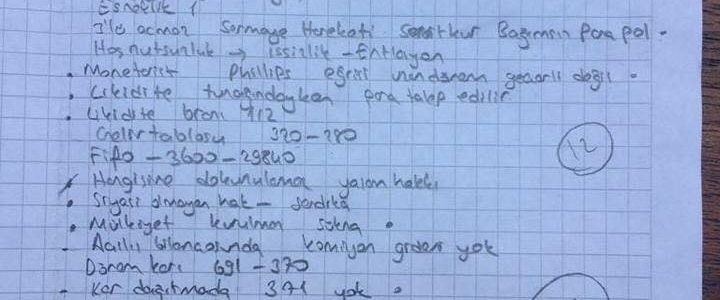 Esneklik 1
3'lü açmaz Sermaye Hareketi Sabit kur Bağımsız Para pol -
Hoşnutsuzluk → işsizlik - Enflasyon
• Monetarist Phillips eğrisi geçerli değil •
• Likidite tuzağındayken para talep edilir
• Likidite oranı 7/12
Gelir tablosu 320-280
Fifo - 3600 - 29840
12
Hangisine dokunulamaz yaşam hakkı
• Siyasi olmayan hak - sendika
• Mülkiyet kurulmaz sükna •
- Açılış bilançosunda komisyon gideri yok
Dönem karı 691-370
- Kar dağıtmada 371 yok •